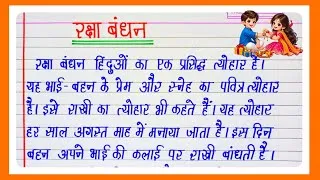 रक्षा बंधन
रक्षा बंधन हिंदुओं का एक प्रसिद्ध त्योहार है।
यह भाई-बहन के प्रेम और स्नेह का पवित्र त्योहार
है। इसे राखी का त्योहार भी कहते हैं। यह त्योहार
हर साल अगस्त माह में मनाया जाता है। इस दिन
बहन अपने भाई की कलाई पर राखी बांधती है।